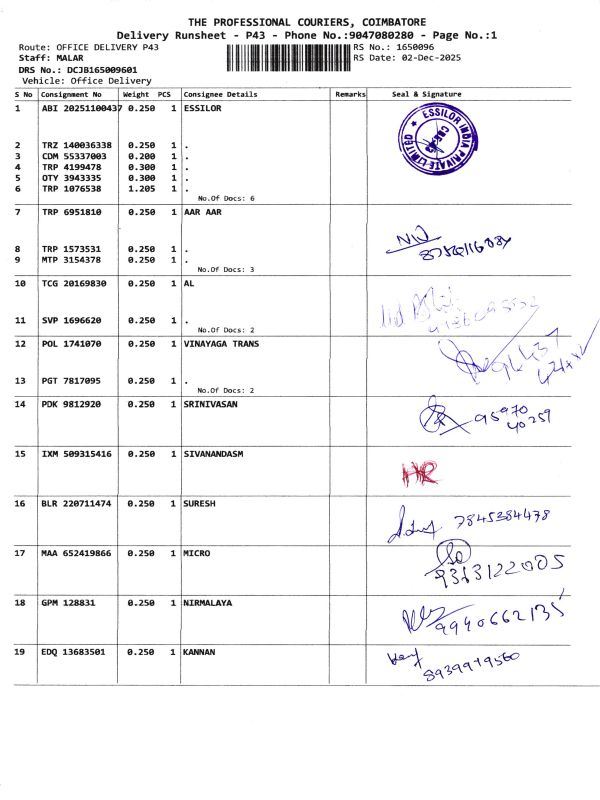 THE PROFESSIONAL COURIERS, COIMBATORE
Delivery Runsheet - P43 - Phone No.:9047080280 - Page No.:1
Route: OFFICE DELIVERY P43
RS No.: 1650096
Staff: MALAR
RS Date: 02-Dec-2025
DRS No.: DCJB165009601
Vehicle: Office Delivery
S No Consignment No Weight PCS Consignee Details Remarks Seal & Signature
1 ABI 20251100437 0.250 1 ESSILOR
ESSILOR INDIA PRIVATE LIMITED
2 TRZ 140036338 0.250 1 .
3 CDM 55337003 0.200 1 .
4 TRP 4199478 0.300 1 .
5 OTY 3943335 0.300 1 .
6 TRP 1076538 1.205 1 .
No.Of Docs: 6
7 TRP 6951810 0.250 1 AAR AAR
8 TRP 1573531 0.250 1 .
9 MTP 3154378 0.250 1 .
No.Of Docs: 3
10 TCG 20169830 0.250 1 AL
11 SVP 1696620 0.250 1 .
No.Of Docs: 2
12 POL 1741070 0.250 1 VINAYAGA TRANS
13 PGT 7817095 0.250 1 .
No.Of Docs: 2
14 PDK 9812920 0.250 1 SRINIVASAN
95970
40259
15 IXM 509315416 0.250 1 SIVANANDASM
HR
16 BLR 220711474 0.250 1 SURESH
7845384478
17 MAA 652419866 0.250 1 MICRO
9363122005
18 GPM 128831 0.250 1 NIRMALAYA
9940662135
19 EDQ 13683501 0.250 1 KANNAN
8939919560